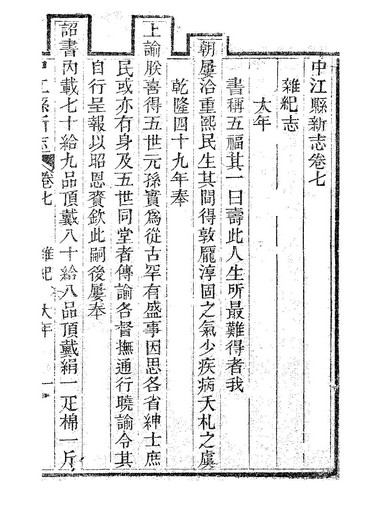 中江縣新志卷七
雜紀志
大年
書稱五福其一曰壽此人生所最難得者我
朝屢洽重熙民生其間得敦龐淳固之氣少疾病夭札之虞
乾隆四十九年奉
上諭朕喜得五世元孫實爲從古罕有盛事因思各省紳士庶
民或亦有身及五世同堂者傳諭各督撫通行曉諭令其
自行呈報以昭恩賚欽此嗣後屢奉
詔書內載七十給九品頂戴八十給八品頂戴絹一疋棉一斤
中江縣新志 卷七 雜紀 大年 一